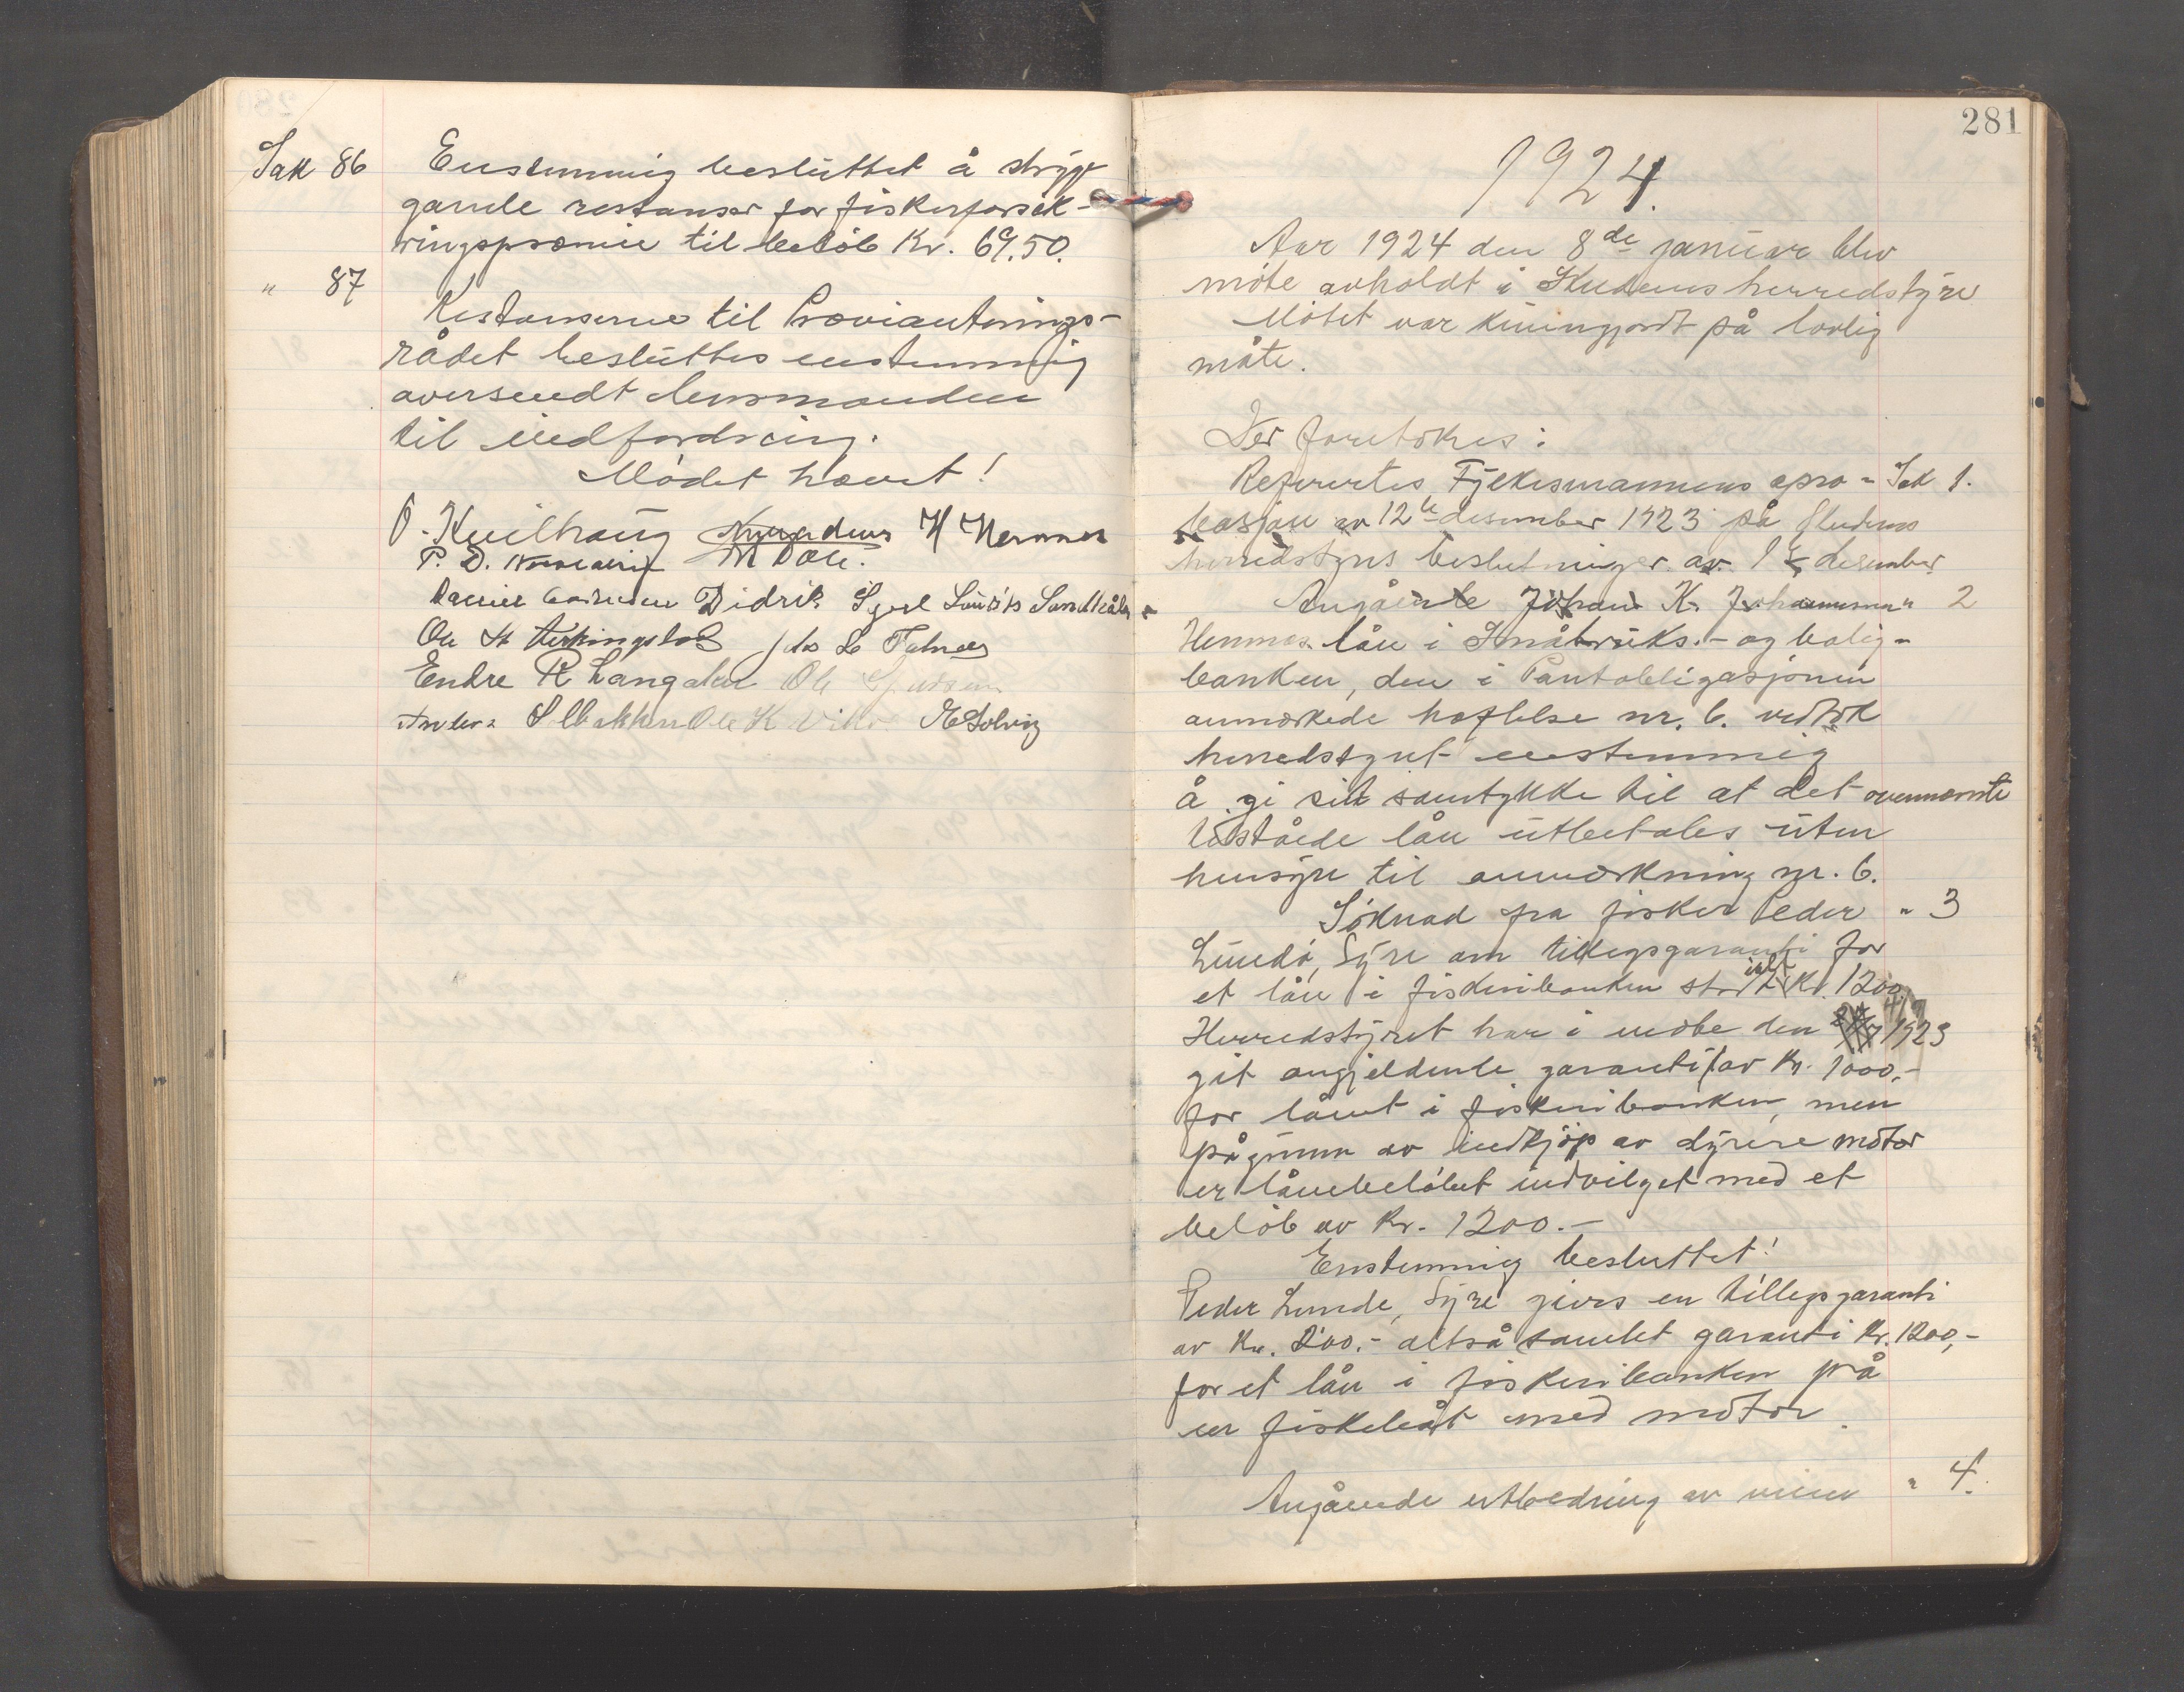 Sak 86 Enstemmig besluttet å stryge
gamle restanser for fiskerforsik-
ringspræmie til beløb Kr. 69.50.
" 87
Restanserne til Provianterings-
rådet besluttes enstemmig
oversendt lensmanden
til indfordring.
Mödet hævet!
O. Kvilhaug H Hemnes
P. D.
Didrik Laurits Sandhåla
Ole H
Endre R Langåker Ole
S. Ole K Vik M Solvig
281
1924.
Aar 1924 den 8de januar blev
möte avholdt i Skudenes herredstyre
Mötet var kunngjordt på lovlig
måte.
Der foretokes:
Refertes Fylkesmannens apro- Sak 1.
basjon av 12te desember 1923 på Skudenes
herredstyres beslutninger av 1ste desember
Angående Johan K. Johannessen " 2
Hemnes lån i Småbruks- og bolig-
banken, den i Pantobligasjonen
anmerkede heftelse nr. 6. vedtok
herredstyret enstemmig
å gi sit samtykke til at det ovennevnte
tilståede lån utbetales uten
hensyn til anmerkning nr. 6.
Söknad fra fisker Peder " 3
Lunde, Syre om tillegsgaranti for
et lån i fiskeribanken stort ialt Kr. 1200.
Herredstyret har i möte den 1923
git angjeldende garanti av Kr. 1000,-
for lånet i fiskeribanken, men
på grunn av indkjöp av dyrere motor
er lånebelöbet indvilget med et
belöb av Kr. 1200.-
Enstemmig besluttet!
Peder Lunde, Syre gives en tillegsgaranti
av Kr. 200.- altså samlet garanti Kr. 1200,-
for et lån i fiskeribanken på
en fiskebåt med motor.
Angående utbedring av veien " 4.